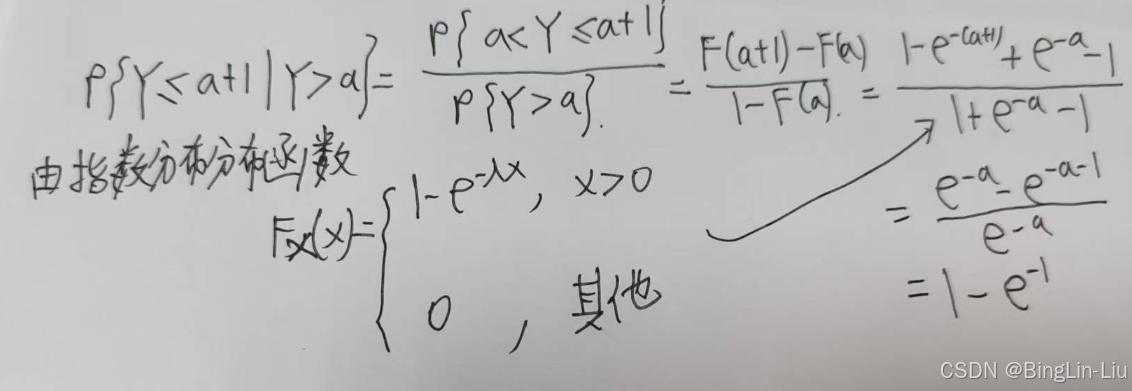 P{Y≤a+1|Y>a}= P{a<Y≤a+1} / P{Y>a} = F(a+1)-F(a) / 1-F(a) = 1-e^{-(a+1)}+e^{-a}-1 / 1+e^{-a}-1
由指数分布分布函数
F_X(x)={ 1-e^{-λx}, x>0
0 , 其他
= e^{-a}-e^{-a-1} / e^{-a}
=1-e^{-1}
CSDN @BingLin-Liu